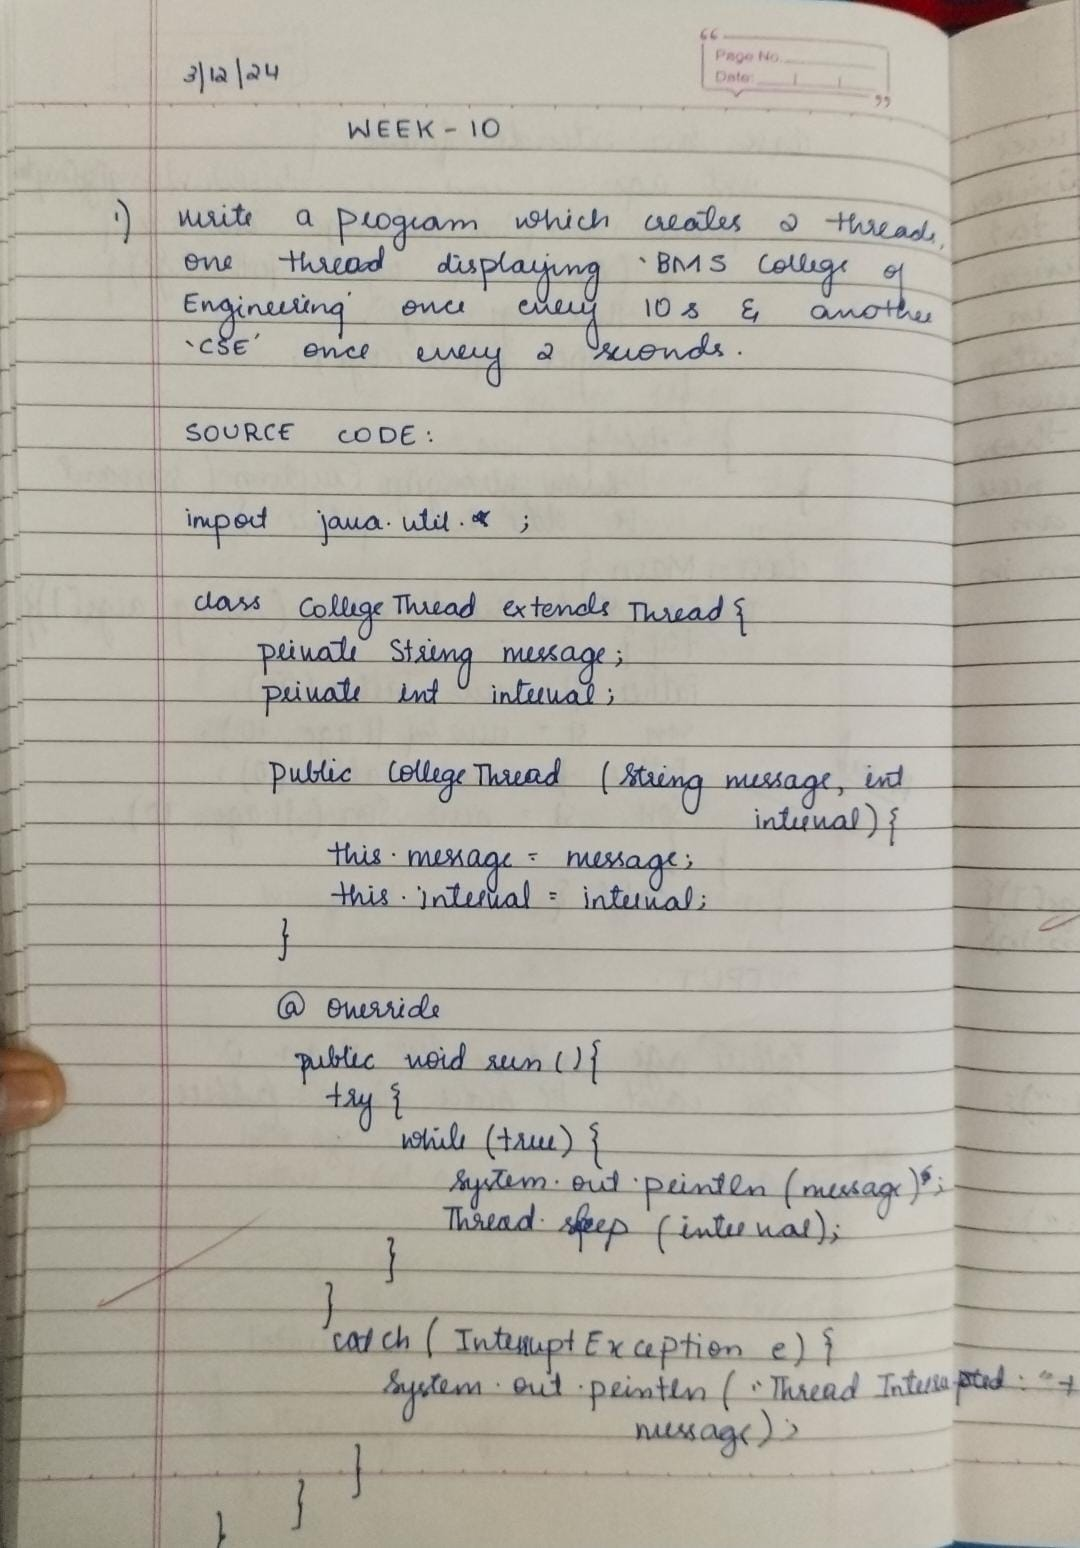 Page No.
Date:
3/12/24
WEEK - 10
1) write a program which creates 2 threads,
one thread displaying 'BMS College of
Engineering' once every 10 s & another
'CSE' once every 2 seconds.
SOURCE CODE:
import java.util.*;
class CollegeThread extends Thread {
private String message;
private int interval;
public CollegeThread (String message, int
interval) {
this.message = message;
this.interval = interval;
}
@ override
public void run () {
try {
while (true) {
System.out.println (message);
Thread.sleep (interval);
}
}
catch ( InterruptException e) {
System.out.println ( "Thread Interrupted: " +
message);
}
}
}